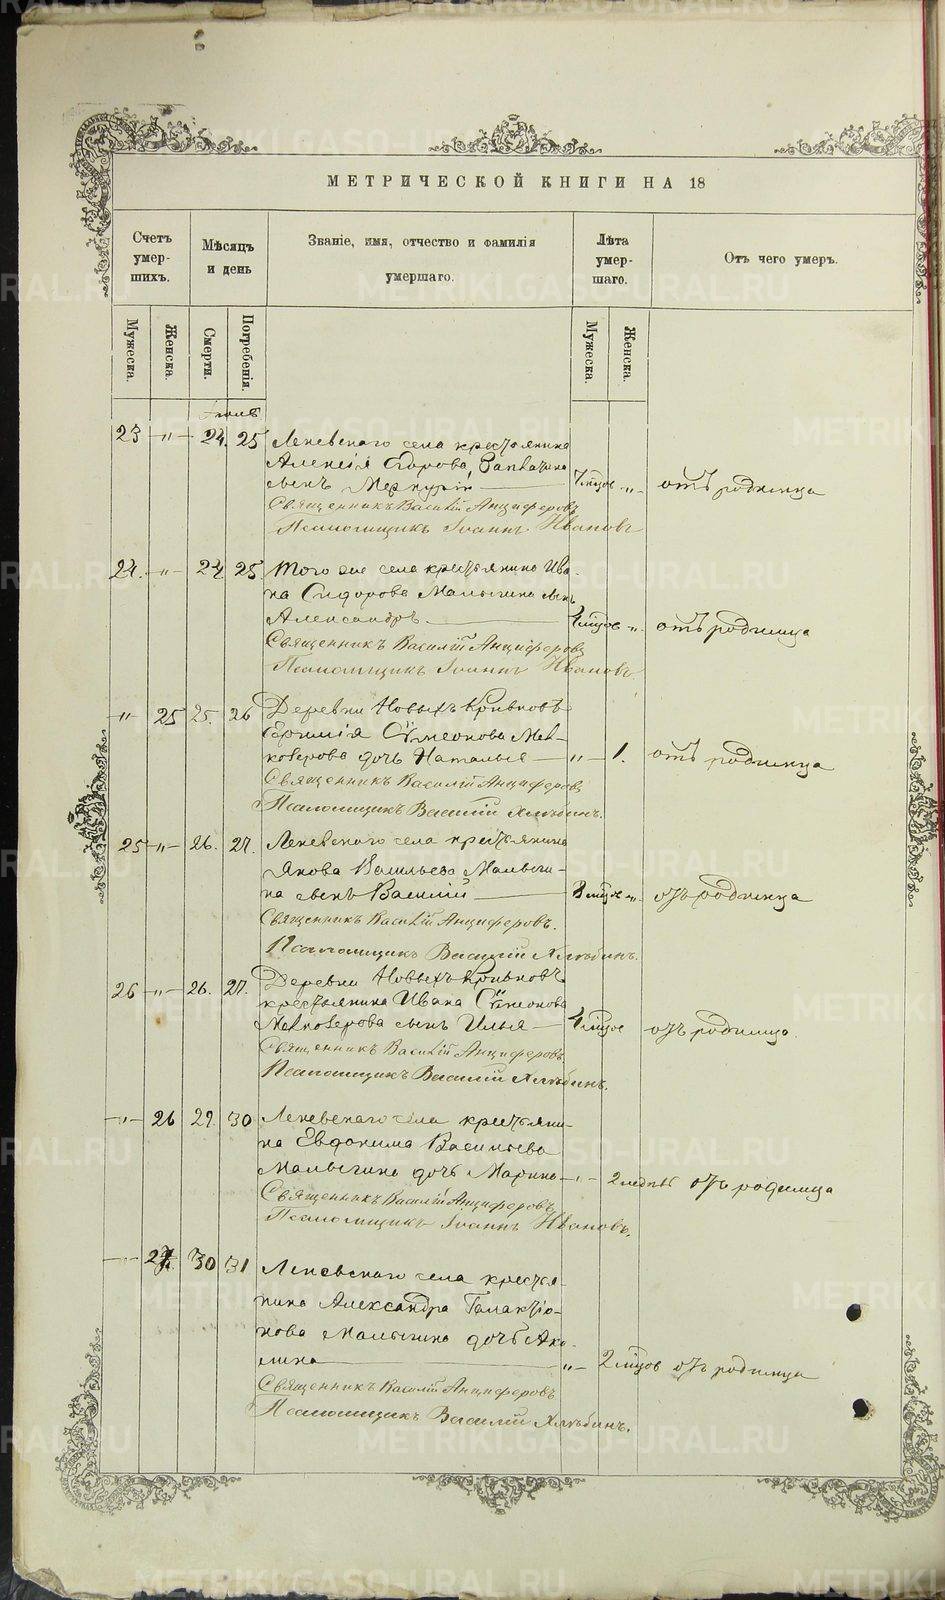 МЕТРИЧЕСКОЙ КНИГИ НА 18
Счетъ умер- шихъ.
Мѣсяцъ и день
Званіе, имя, отчество и фамилія умершаго.
Лѣта умер- шаго.
Отъ чего умеръ.
Мужеска.
Женска.
Смерти.
Погребенія.
Мужеска.
Женска.
23 -"- 24. 25 Леневскаго села крестьянина
Алексія Сидорова
сынъ Меркурій "- отъ родимца
Священникъ Василій Анциферовъ
Псаломщикъ Іоаннъ Ивановъ
24. -"- 24 25. Того же села крестьянина Ива-
на Сидорова Малыгина сынъ
Александръ. "- отъ родимца
Священникъ Василій Анциферовъ
Псаломщикъ Іоаннъ Ивановъ
-"- 25 25. 26 Деревни Новыхъ Кривковъ
Сѵмеонова Мел-
козерова дочь Наталья -"- 1. отъ родимца
Священникъ Василій Анциферовъ
Псаломщикъ Василій Хлѣбинъ.
25 -"- 26. 27. Леневскаго села крестьянина
Якова Васильева Малыги-
на сынъ Василій "- отъ родимца
Священникъ Василій Анциферовъ.
Псаломщикъ Василій Хлѣбинъ.
26 -"- 26. 27. Деревни Новыхъ Кривковъ
крестьянина Ивана Сѵмеонова
Мелкозерова сынъ Илья отъ родимца.
Священникъ Василій Анциферовъ.
Псаломщикъ Василій Хлѣбинъ.
-"- 26 29. 30 Леневскаго села крестьяни-
на Евдокима Васильева
Малыгина дочь Марина -"- отъ родимца
Священникъ Василій Анциферовъ
Псаломщикъ Іоаннъ Ивановъ.
-"- 27. 30 31 Леневскаго села крестья-
нина Александра Галактіо-
нова Малыгина дочь Аку-
лина -"- 2 мѣсцов отъ родимца
Священникъ Василій Анциферовъ
Псаломщикъ Василій Хлѣбинъ.
METRIKI.GASO-URAL.RU